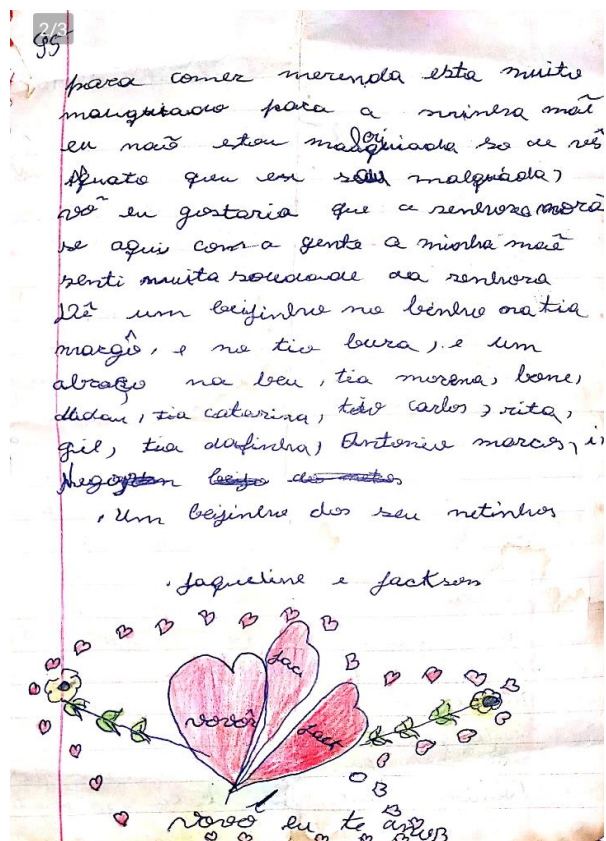 2/3
95
para comer merenda esta muito
malquiado para a minha mãe
eu naõ estou malqriada so de vês
quato queu eu sou malquiada,
vô eu gostaria que a senhora mora
se aqui com a gente a minha maẽ
senti muita soudade da senhora
Dê um beijinho no binho na tia
margô, e no tio bura, e um
abraço na beu, tia morena, bone,
didau, tia catarina, tio carlos, rita,
gil, tia dafinha, Antonio marcos, i
Nego
. Um beijinho dos seu netinhos
. Jaqueline e Jackson
vovô
Jac
Jack
vovó eu te amo